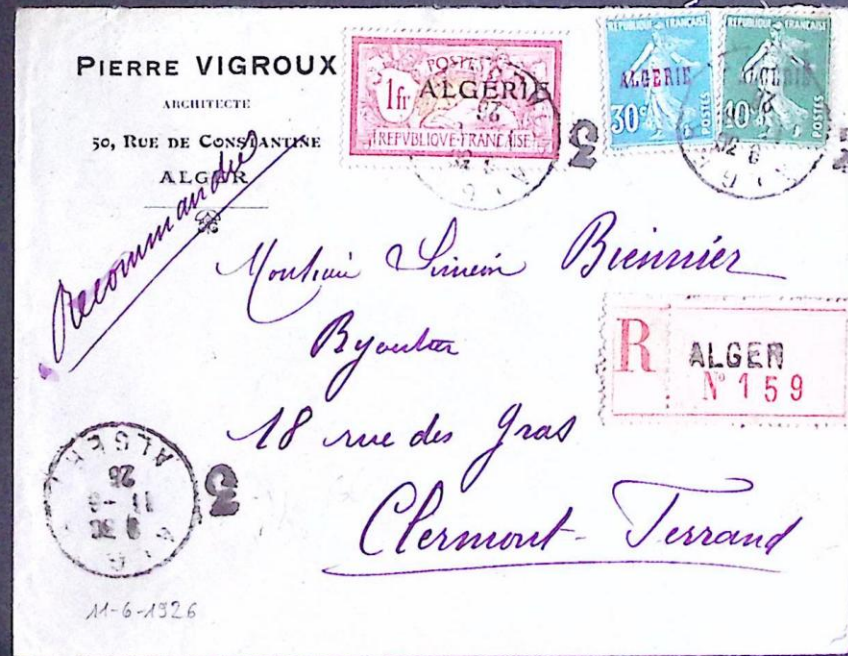 PIERRE VIGROUX
ARCHITECTE
50, RUE DE CONSTANTINE
ALGER
Recommandée
POSTES
1fr
ALGÉRIE
REPVBLIQVE FRANÇAISE
REPUBLIQUE FRANÇAISE
ALGÉRIE
30c
POSTES
REPUBLIQUE FRANÇAISE
ALGÉRIE
10c
POSTES
Monsieur Siméon Biennier
Bijoutier
18 rue des Gras
Clermont-Ferrand
R
ALGER
N° 159
ALGER
11-6
26
11-6-1926